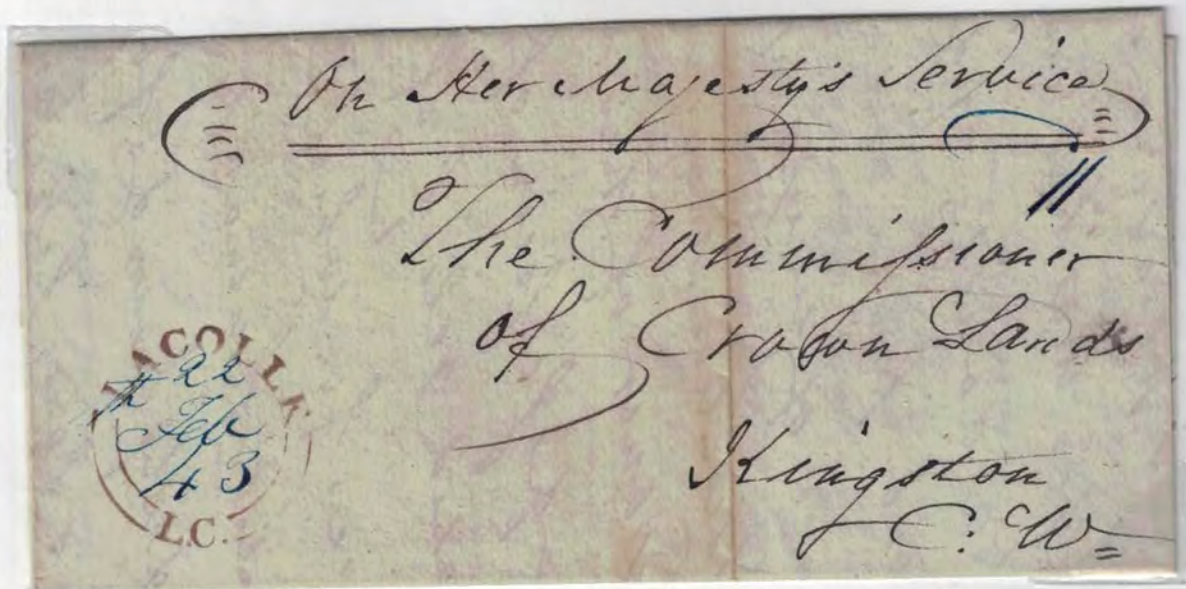 On Her Majesty's Service
11
The Commissioner
of Crown Lands
Kingston
C. W
LACOLLE
22
th
Feb
43
L.C.